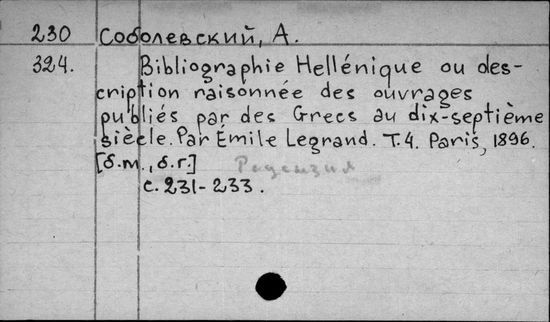 230 Соболевский, А.
324. Bibliographie Hellénique ou des-
cription raisonnée des ouvrages
publiés par des Grecs au dix-septième
siècle. Par Émile Legrand. T.4. Paris, 1896.
[б.м., б.г.] Рецензия
с. 231-233.